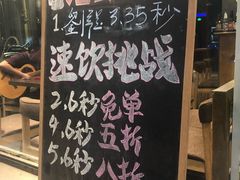 1.劉胖 3.35秒
速饮挑战
2.6秒免单
4.6秒五折
5.6秒八折